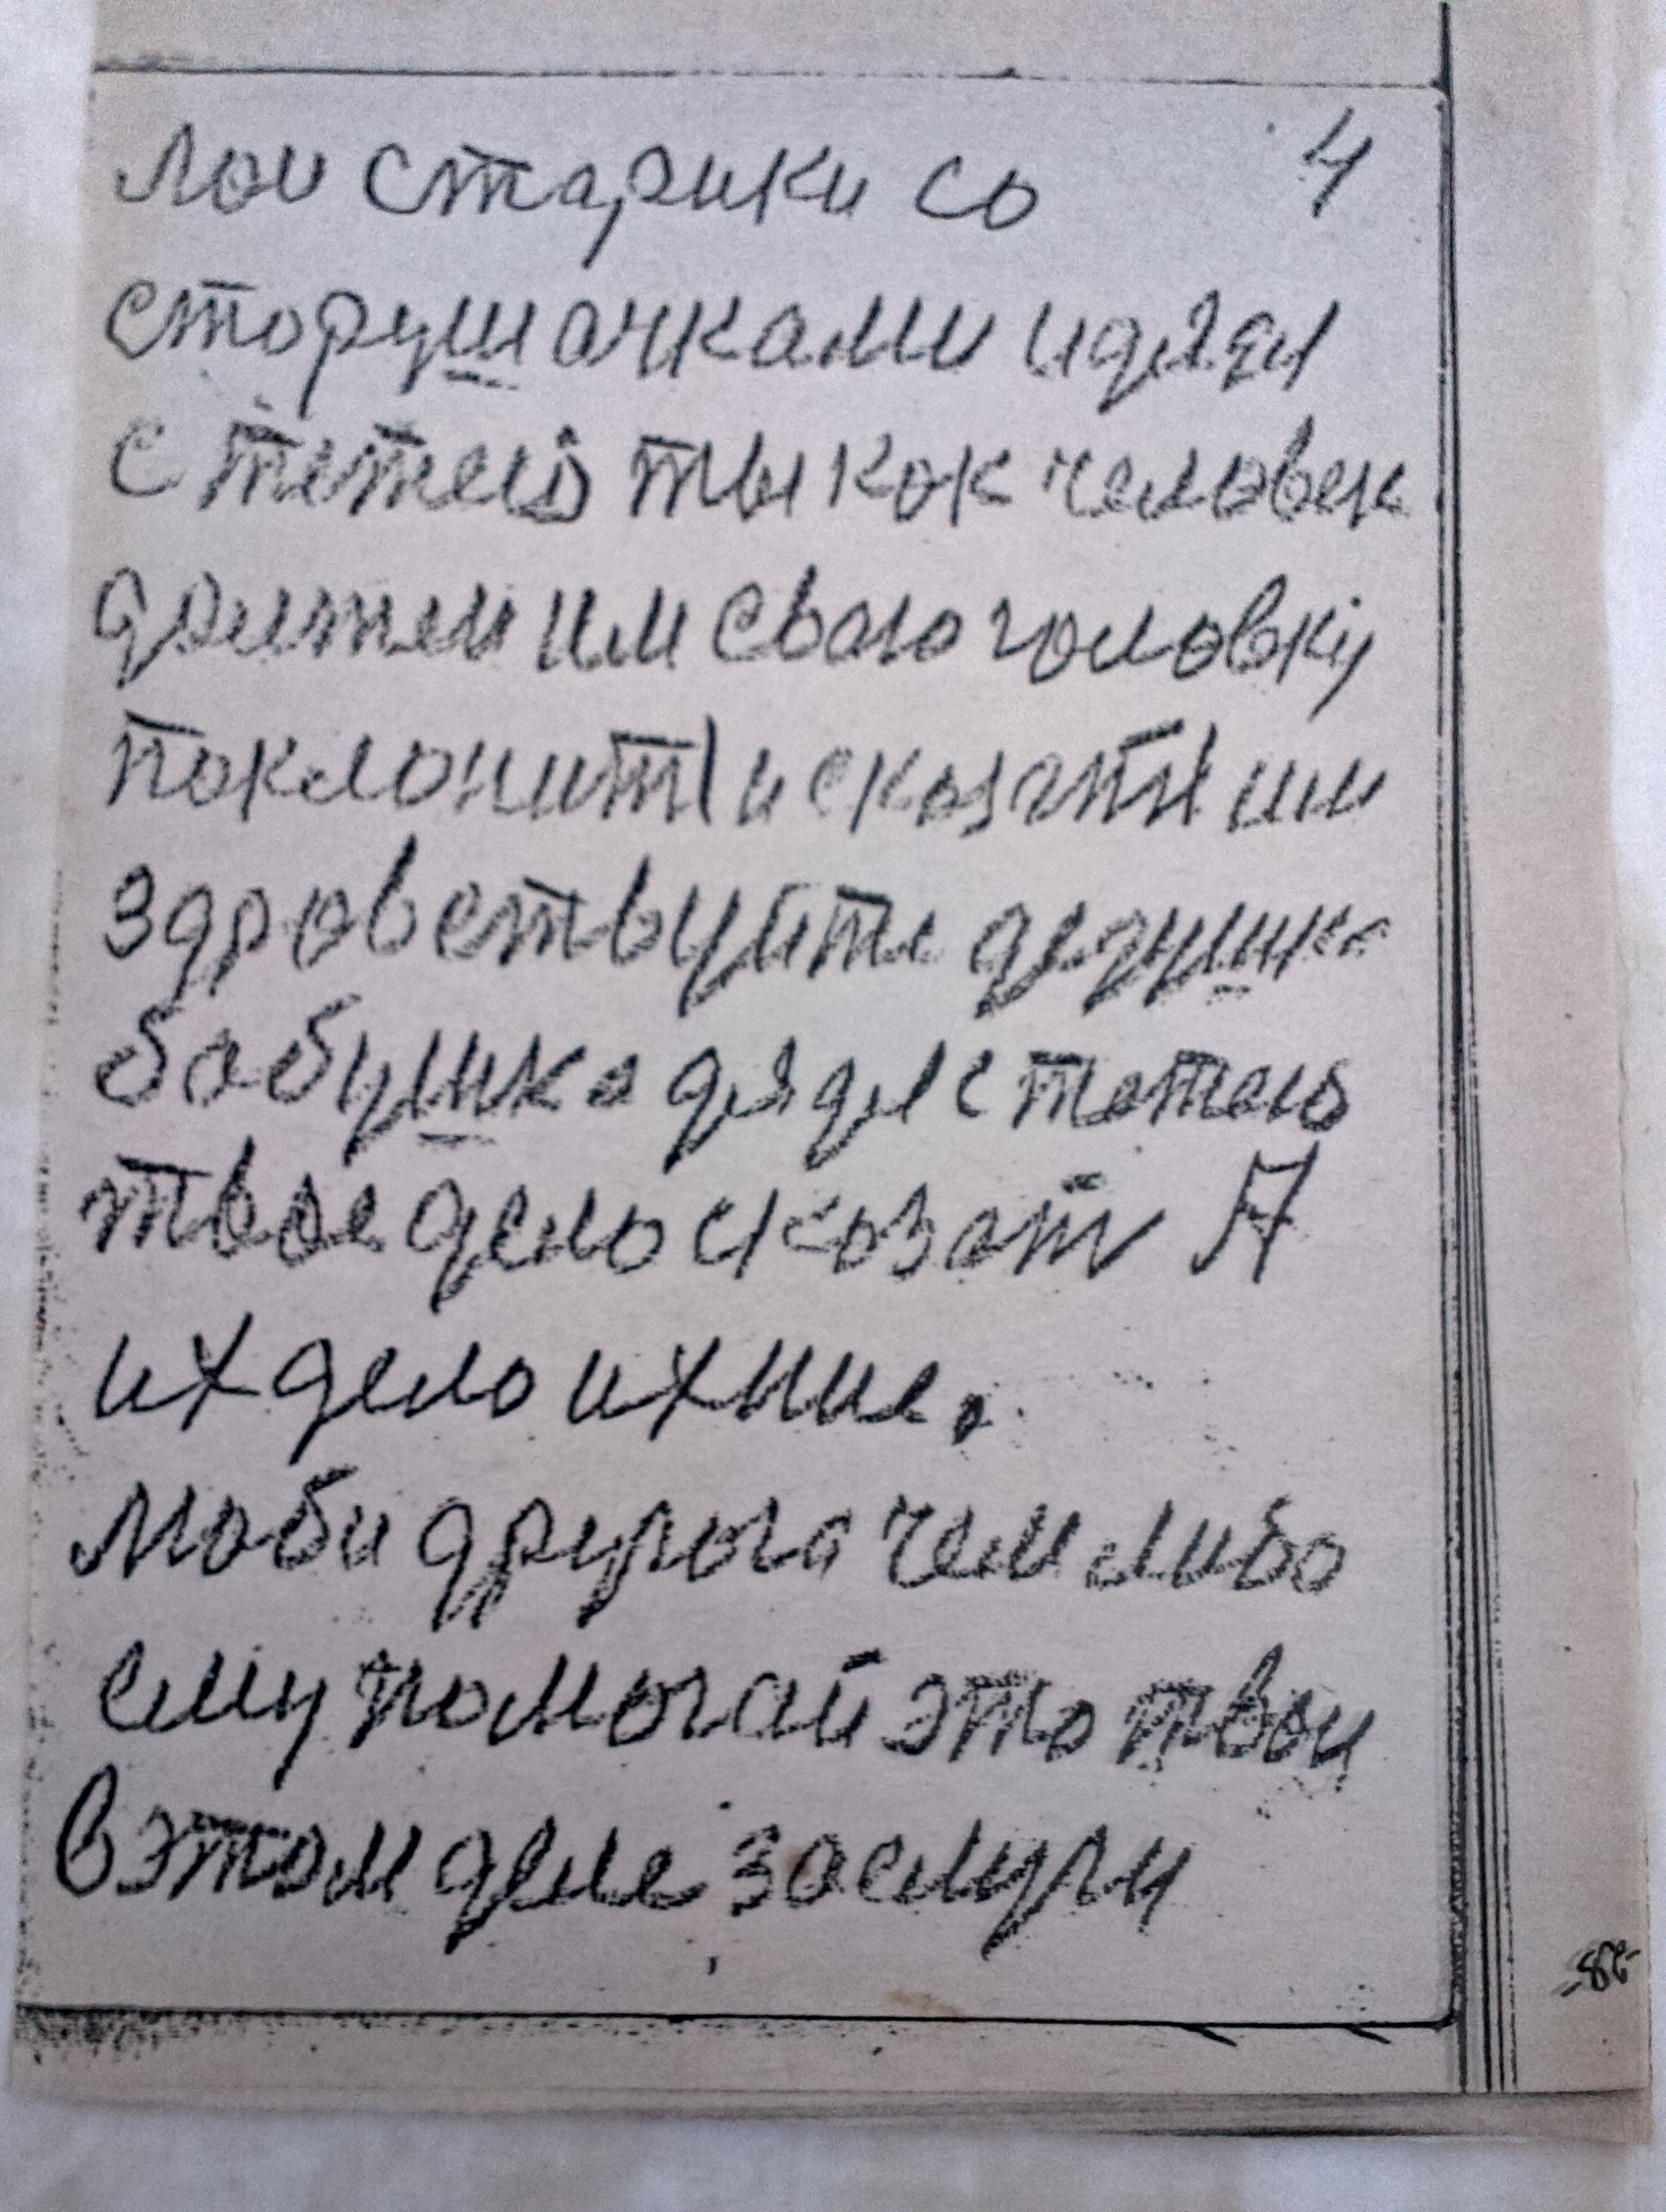 лои старики со 4
сторушачками и дядя
с тетею ты как человек
должен им сваю головку
поклонитЬ и сказатЬ им
здровствуйте дедушка
бабушка дядя с тетею
твое дело сказать А
их дело ихние.
люби другого чем либо
ему помогай это твои
в этом деле заслуги